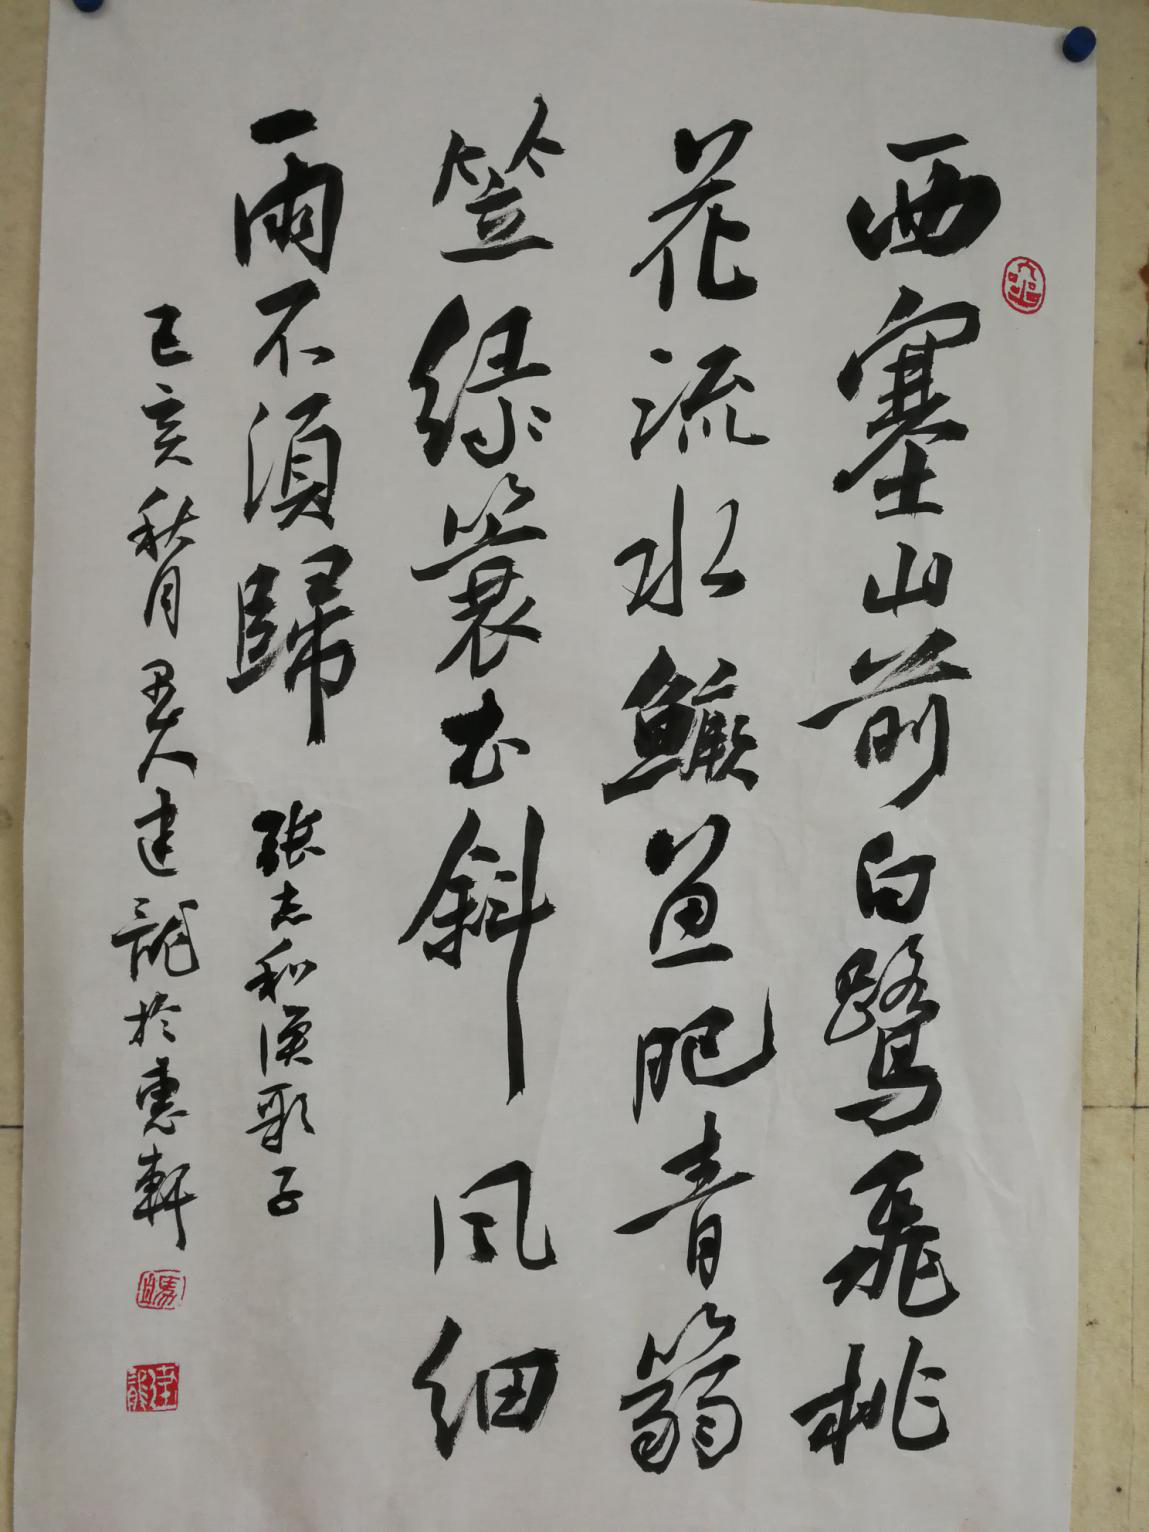 西塞山前白鷺飛桃
花流水鱖魚肥青篛
笠綠簑衣斜風細
雨不須歸
張志和漁歌子
己亥秋月 建龍於惠軒
馬
建龍